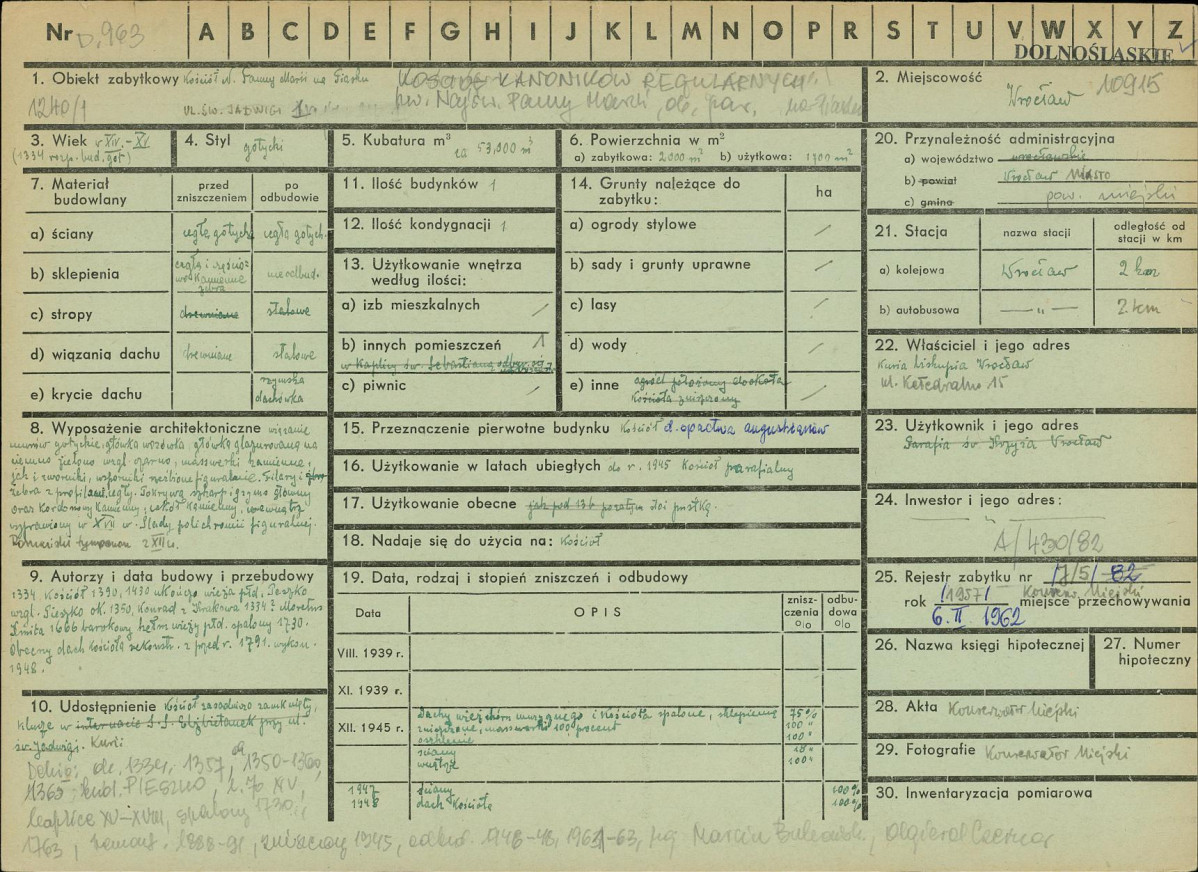 Nr D.963 A B C D E F G H I J K L M N O P R S T U V W X Y Z
DOLNOŚLĄSKIE
1. Obiekt zabytkowy Kościół N. Panny Marii na Piasku KANONIKÓW REGULARNYCH
1240/1 UL. ŚW. JADWIGI pw. Najśw. Panny Marii, ob. par. na Piasku
2. Miejscowość Wrocław 10915
3. Wiek XIV.-XV
(1334 rozp. bud. got)
4. Styl gotycki
5. Kubatura m³ ca 53,000 m³
6. Powierzchnia w m²
a) zabytkowa: 2000 m² b) użytkowa: 1700 m²
20. Przynależność administracyjna
a) województwo wrocławskie
b) powiat Wrocław Miasto
c) gmina pow. miejski
7. Materiał budowlany
przed zniszczeniem
po odbudowie
a) ściany cegła gotyck. cegła gotych.
b) sklepienia cegła i kamienne żebra nieodbud.
c) stropy drewniane stalowe
d) wiązania dachu drewniane stalowe
e) krycie dachu rzymska dachówka
11. Ilość budynków 1
12. Ilość kondygnacji 1
13. Użytkowanie wnętrza według ilości:
a) izb mieszkalnych /
b) innych pomieszczeń 1
w Kaplicy św. Sebastiana
c) piwnic /
14. Grunty należące do zabytku:
ha
a) ogrody stylowe /
b) sady i grunty uprawne /
c) lasy /
d) wody /
e) inne ogród położony dookoła /
kościoła zniszczony
21. Stacja
nazwa stacji
odległość od stacji w km
a) kolejowa Wrocław 2 km
b) autobusowa — „ — 2 km
22. Właściciel i jego adres
Kuria Biskupia Wrocław
ul. Katedralna 15
23. Użytkownik i jego adres
Parafia św Krzyża Wrocław
24. Inwestor i jego adres:
A/430/82
25. Rejestr zabytku nr /7/5/ 82
Konserw. Miejski
rok /1957/ miejsce przechowywania
6. II. 1962
26. Nazwa księgi hipotecznej
27. Numer hipoteczny
28. Akta Konserwator Miejski
29. Fotografie Konserwator Miejski
30. Inwentaryzacja pomiarowa
8. Wyposażenie architektoniczne wiązanie
murów gotyckie, główka wozówka główką glazurowaną na
ciemno zielono wzgl. czarno, masswerki kamienne,
jak i zworniki, wsporniki rzeźbione figuralnie. Filary i
żebra z profil. cegły. Pokrywa szkarp i gzyms główny
oraz kordonowy kamienny, cokół kamienny, wewnątrz
wyprawiony w XVII w. Ślady polichromii figuralnej.
Romański tympanon z XII w.
15. Przeznaczenie pierwotne budynku Kościół d. opactwa augustianów
16. Użytkowanie w latach ubiegłych do r. 1945 Kościół parafialny
17. Użytkowanie obecne jak pod 13b pozatym stoi pustką.
18. Nadaje się do użycia na: Kościół
9. Autorzy i data budowy i przebudowy
1334 Kościół 1390, 1430 ukończ. wieża płd. Peszko
wzgl. Pieszko ok. 1350, Konrad z Krakowa 1394?
1666 barokowy hełm wieży płd. spalony 1730.
Obecny dach kościoła rekonstr. z przed r. 1791. wykon.
1948.
10. Udostępnienie Kościół zasadniczo zamknięty,
klucze w internacie S.S. Elżbietanek przy ul.
św. Jadwigi. Kurii
Dehio: ok. 1334, 1357, ok 1350-1360,
1365, bud. PIESZKO, 2. poł XV,
kaplice XV-XVIII, spalony 1730 i
1763, remont. 1888-91, zniszczony 1945, odbud. 1946-48, 1961-63, Marcin Bukowski, Olgierd Czerner
19. Data, rodzaj i stopień zniszczeń i odbudowy
Data OPIS zniszczenia o/o odbudowa o/o
VIII. 1939 r.
XI. 1939 r.
XII. 1945 r. Dachy wież hełm murowanego i Kościoła spalone, sklepienia 75%
zniszczone, masswerki 100 procent 100 "
oszklenie 100 "
ściany
wnętrze 100 "
1947 ściany 100%
1948 dach Kościoła 100%